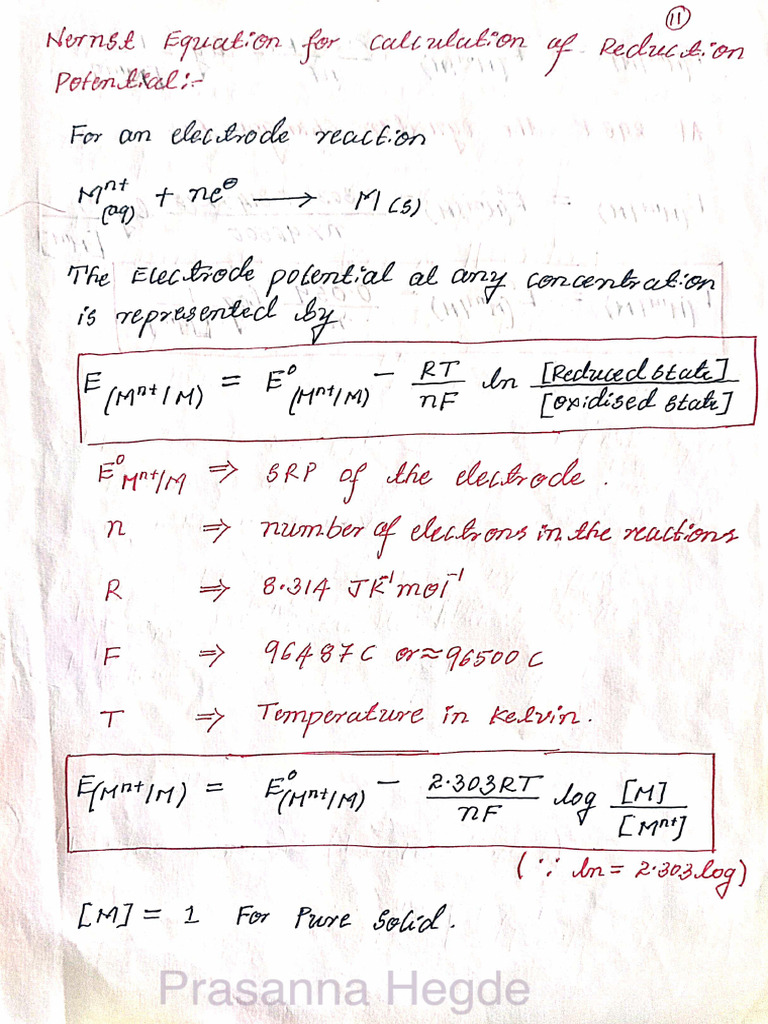 11
Nernst Equation for calculation of Reduction
Potential:-
For an electrode reaction
Mⁿ⁺(aq) + ne⊖ ⟶ M(s)
The Electrode potential at any concentration
is represented by
E(Mⁿ⁺/M) = E⁰(Mⁿ⁺/M) − RT/nF ln [Reduced state]/[Oxidised state]
E⁰Mⁿ⁺/M ⇒ SRP of the electrode.
n ⇒ number of electrons in the reactions
R ⇒ 8.314 JK⁻¹mol⁻¹
F ⇒ 96487C or ≈ 96500 C
T ⇒ Temperature in Kelvin.
E(Mⁿ⁺/M) = E⁰(Mⁿ⁺/M) − 2.303RT/nF log [M]/[Mⁿ⁺]
(∵ ln = 2.303log)
[M] = 1 For Pure Solid.
Prasanna Hegde